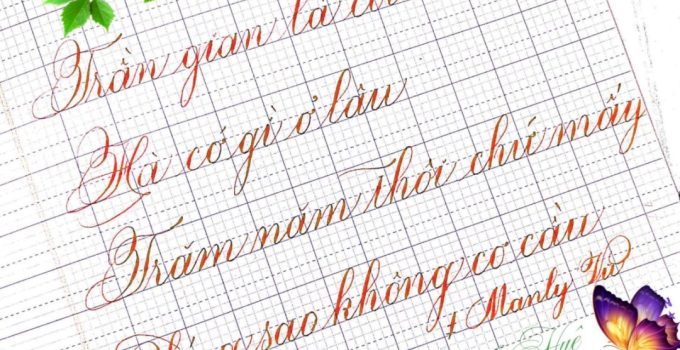 Trần gian là
Hạ có gì ở lâu
Trăm năm thôi chứ mấy
sao không cơ cầu
Manly Vũ
Huê